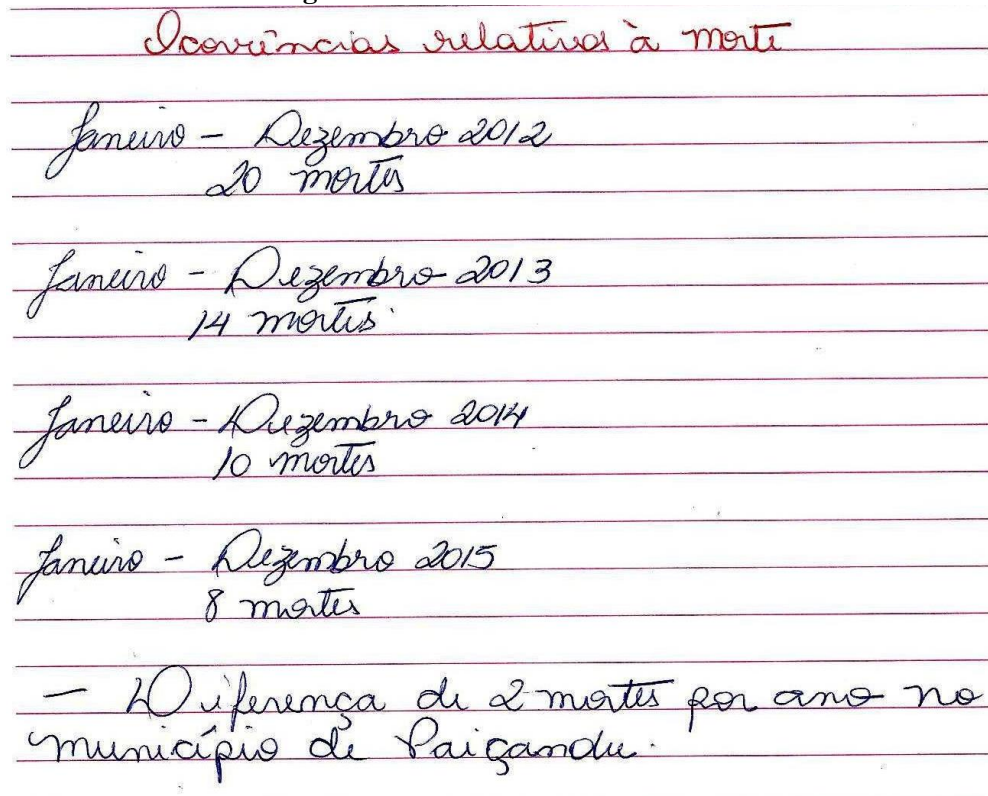 Ocorrências relativas à morte
Janeiro - Dezembro 2012
20 mortes
Janeiro - Dezembro 2013
14 mortes
Janeiro - Dezembro 2014
10 mortes
Janeiro - Dezembro 2015
8 mortes
- Diferença de 2 mortes por ano no
município de Paiçandu.